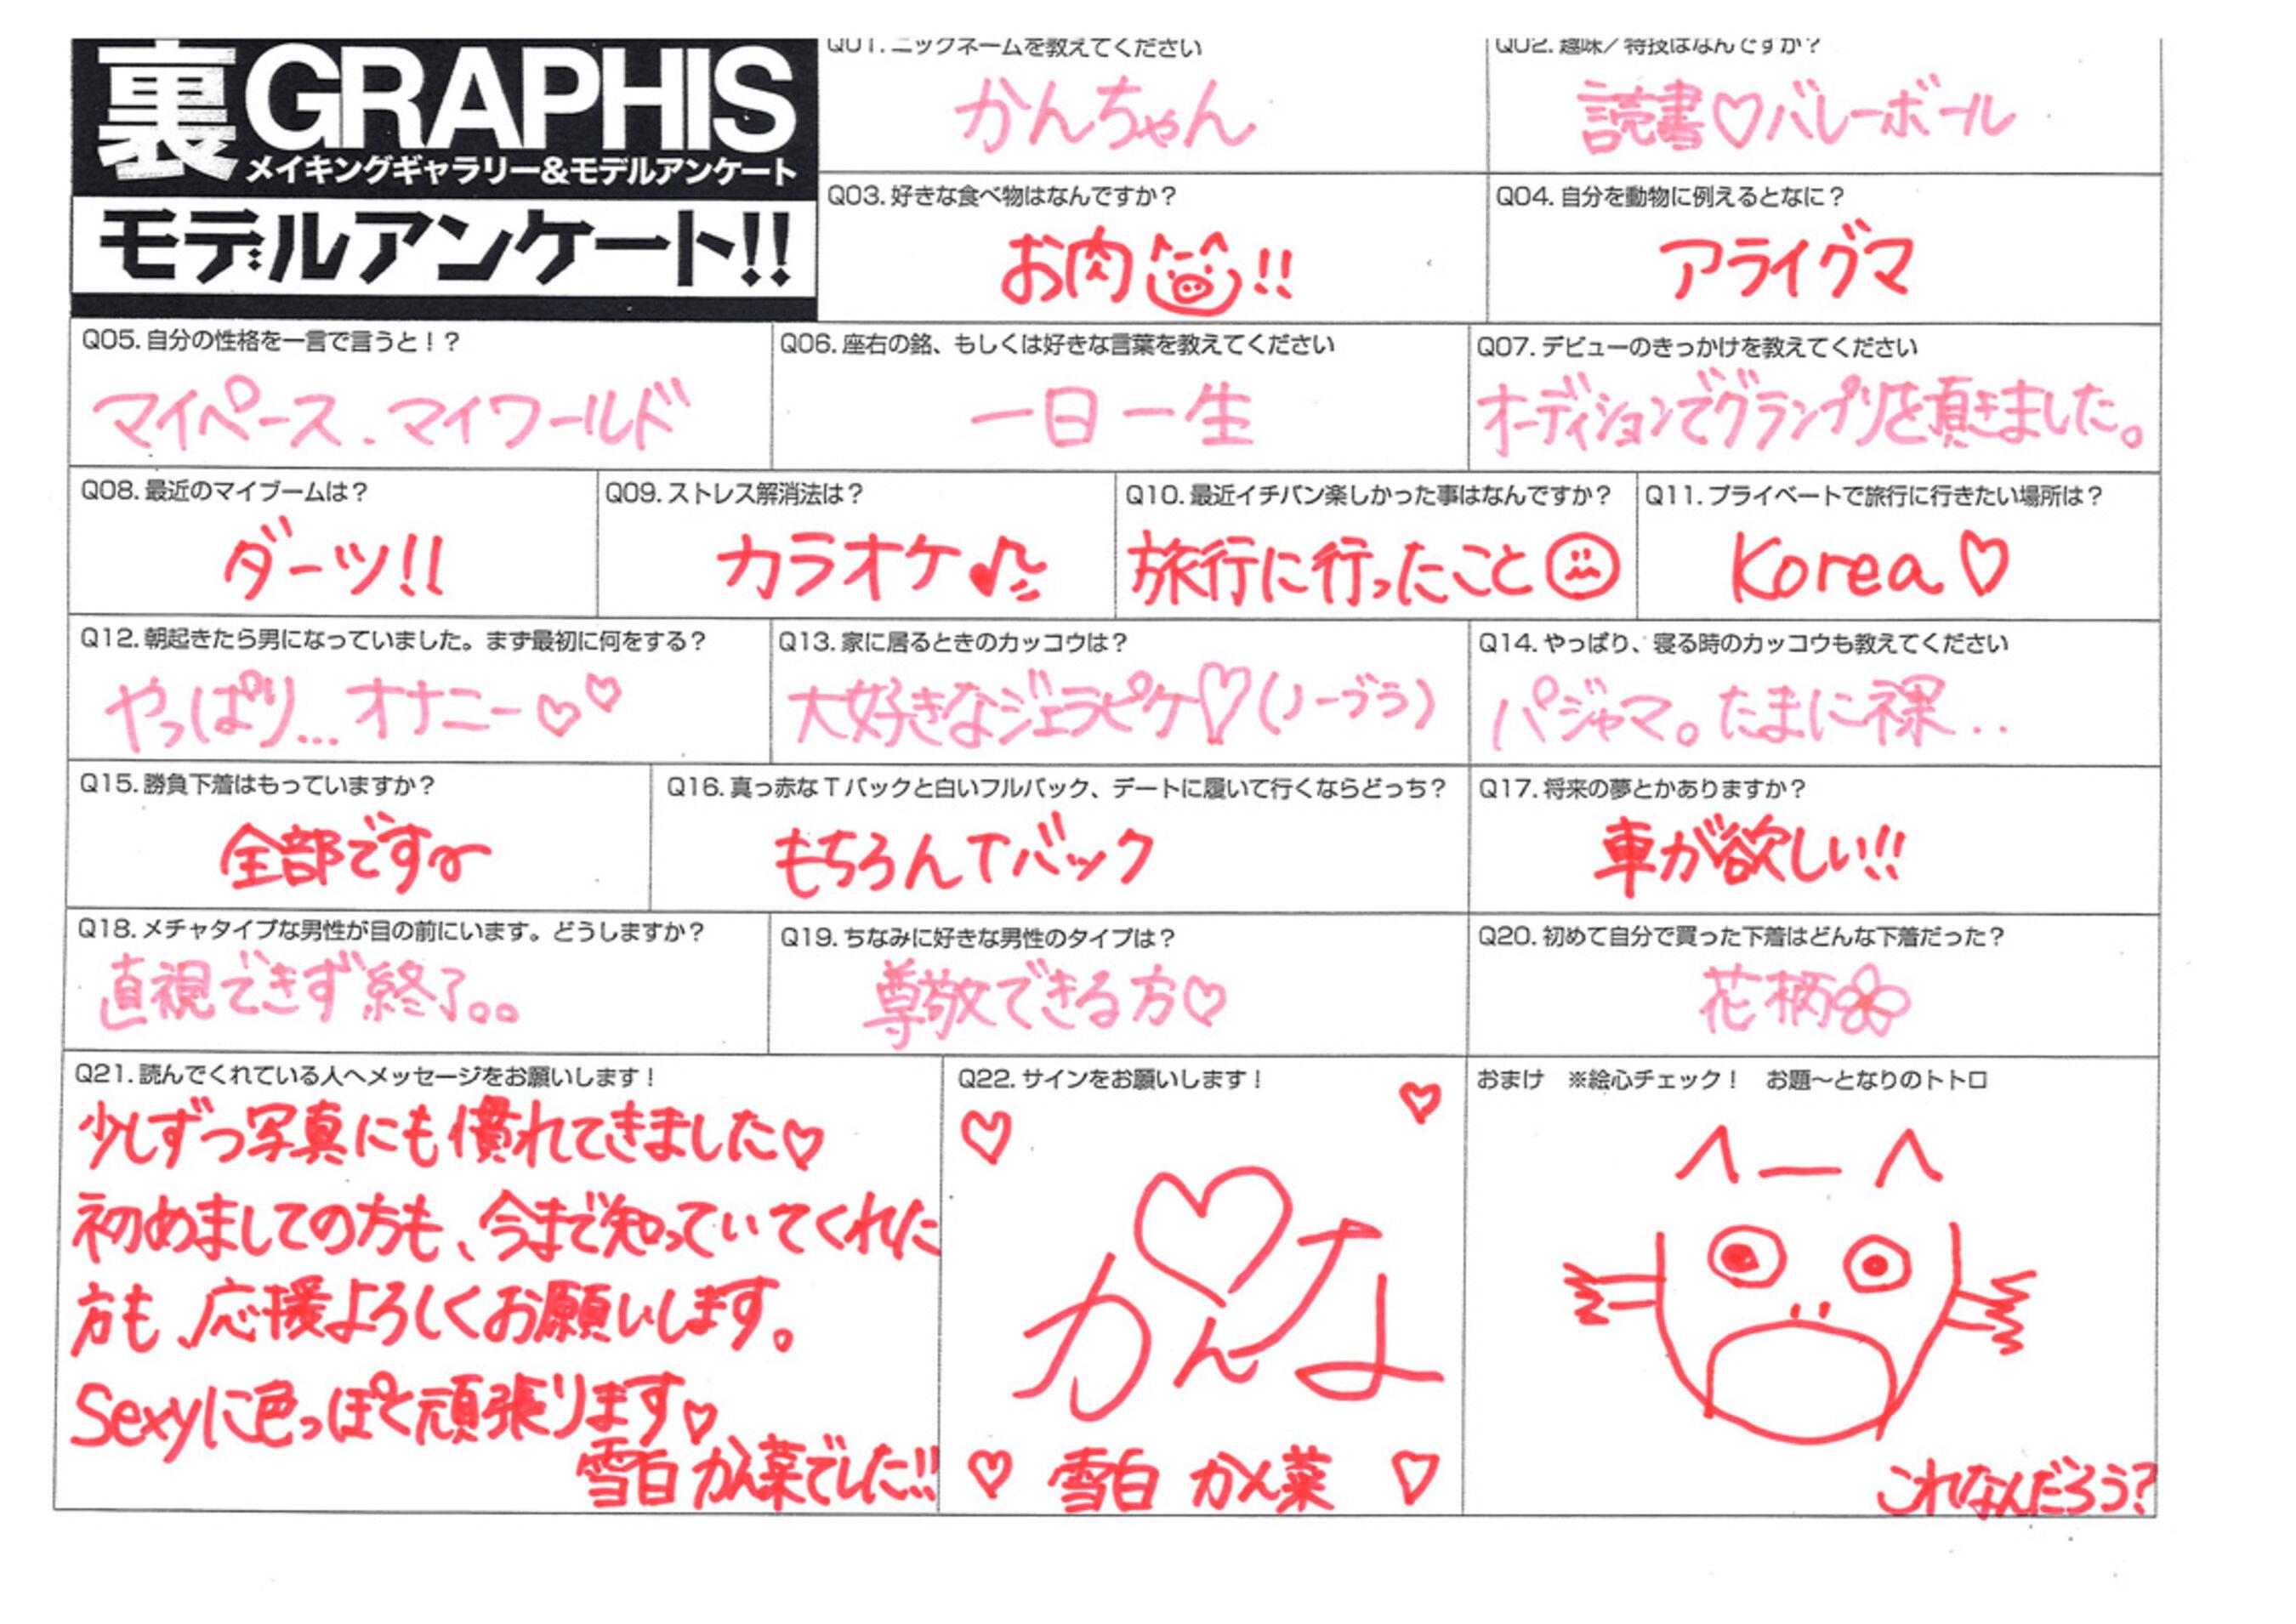 裏GRAPHIS
メイキングギャラリー&モデルアンケート
モデルアンケート!!
Q01. ニックネームを教えてください
かんちゃん
Q02. 趣味／特技はなんですか？
読書♡バレーボール
Q03. 好きな食べ物はなんですか？
お肉!!
Q04. 自分を動物に例えるとなに？
アライグマ
Q05. 自分の性格を一言で言うと！？
マイペース．マイワールド
Q06. 座右の銘、もしくは好きな言葉を教えてください
一日一生
Q07. デビューのきっかけを教えてください
オーディションでグランプリを頂きました。
Q08. 最近のマイブームは？
ダーツ!!
Q09. ストレス解消法は？
カラオケ♪
Q10. 最近イチバン楽しかった事はなんですか？
旅行に行ったこと
Q11. プライベートで旅行に行きたい場所は？
Korea♡
Q12. 朝起きたら男になっていました。まず最初に何をする？
やっぱり...オナニー♡♡
Q13. 家に居るときのカッコウは？
大好きなジェラピケ♡(ノーブラ)
Q14. やっぱり、寝る時のカッコウも教えてください
パジャマ。たまに裸...
Q15. 勝負下着はもっていますか？
全部です
Q16. 真っ赤なTバックと白いフルバック、デートに履いて行くならどっち？
もちろんTバック
Q17. 将来の夢とかありますか？
車が欲しい!!
Q18. メチャタイプな男性が目の前にいます。どうしますか？
直視できず終了。。
Q19. ちなみに好きな男性のタイプは？
尊敬できる方♡
Q20. 初めて自分で買った下着はどんな下着だった？
花柄
Q21. 読んでくれている人へメッセージをお願いします！
少しずつ写真にも慣れてきました♡
初めましての方も、今まで知っていてくれた
方も、応援よろしくお願いします。
Sexyに色っぽく頑張ります♡
雪白 かん菜でした!!
Q22. サインをお願いします！
かんな
♡ 雪白 かん菜 ♡
おまけ ※絵心チェック！ お題〜となりのトトロ
これなんだろう?